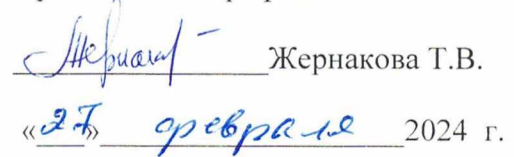 Жернакова Т.В.
«27» февраля 2024 г.